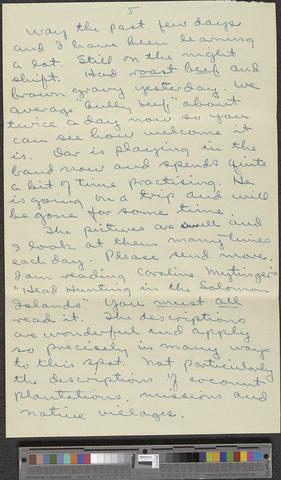 5
way the past few days
and I have been learning
a lot. Still on the night
shift. Had roast beef and
brown gravy yesterday. We
average "bully beef" about
twice a day now so you
can see how welcome it
is. Dar is playing in the
band now and spends quite
a bit of time practising. He
is going on a trip and will
be gone for some time.
The pictures are swell and
I look at them many times
each day. Please send more.
I am reading Caroline Mytinger's
"Head Hunting in the Solomon
Islands" You must all
read it. The descriptions
are wonderful and apply
so precisely in many ways
to this spot. Not particularly
the descriptions of coconut
plantations, missions and
native villages.